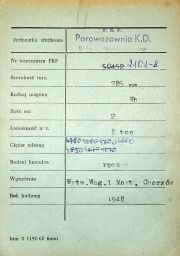 P.K.P.
Jednostka służbowa Parowozownia K.D.
Nr inwentarza PKP 50452 2101-8
Szerokość toru 785 mm
Rodzaj wagonu Wh
Ilość osi 2
Ładowność w t. 8 ton
Ciężar własny
Rodzaj hamulca ręczny
Wytwórnia Wytw.Wag.i Most. Chorzów
Rok budowy 1948